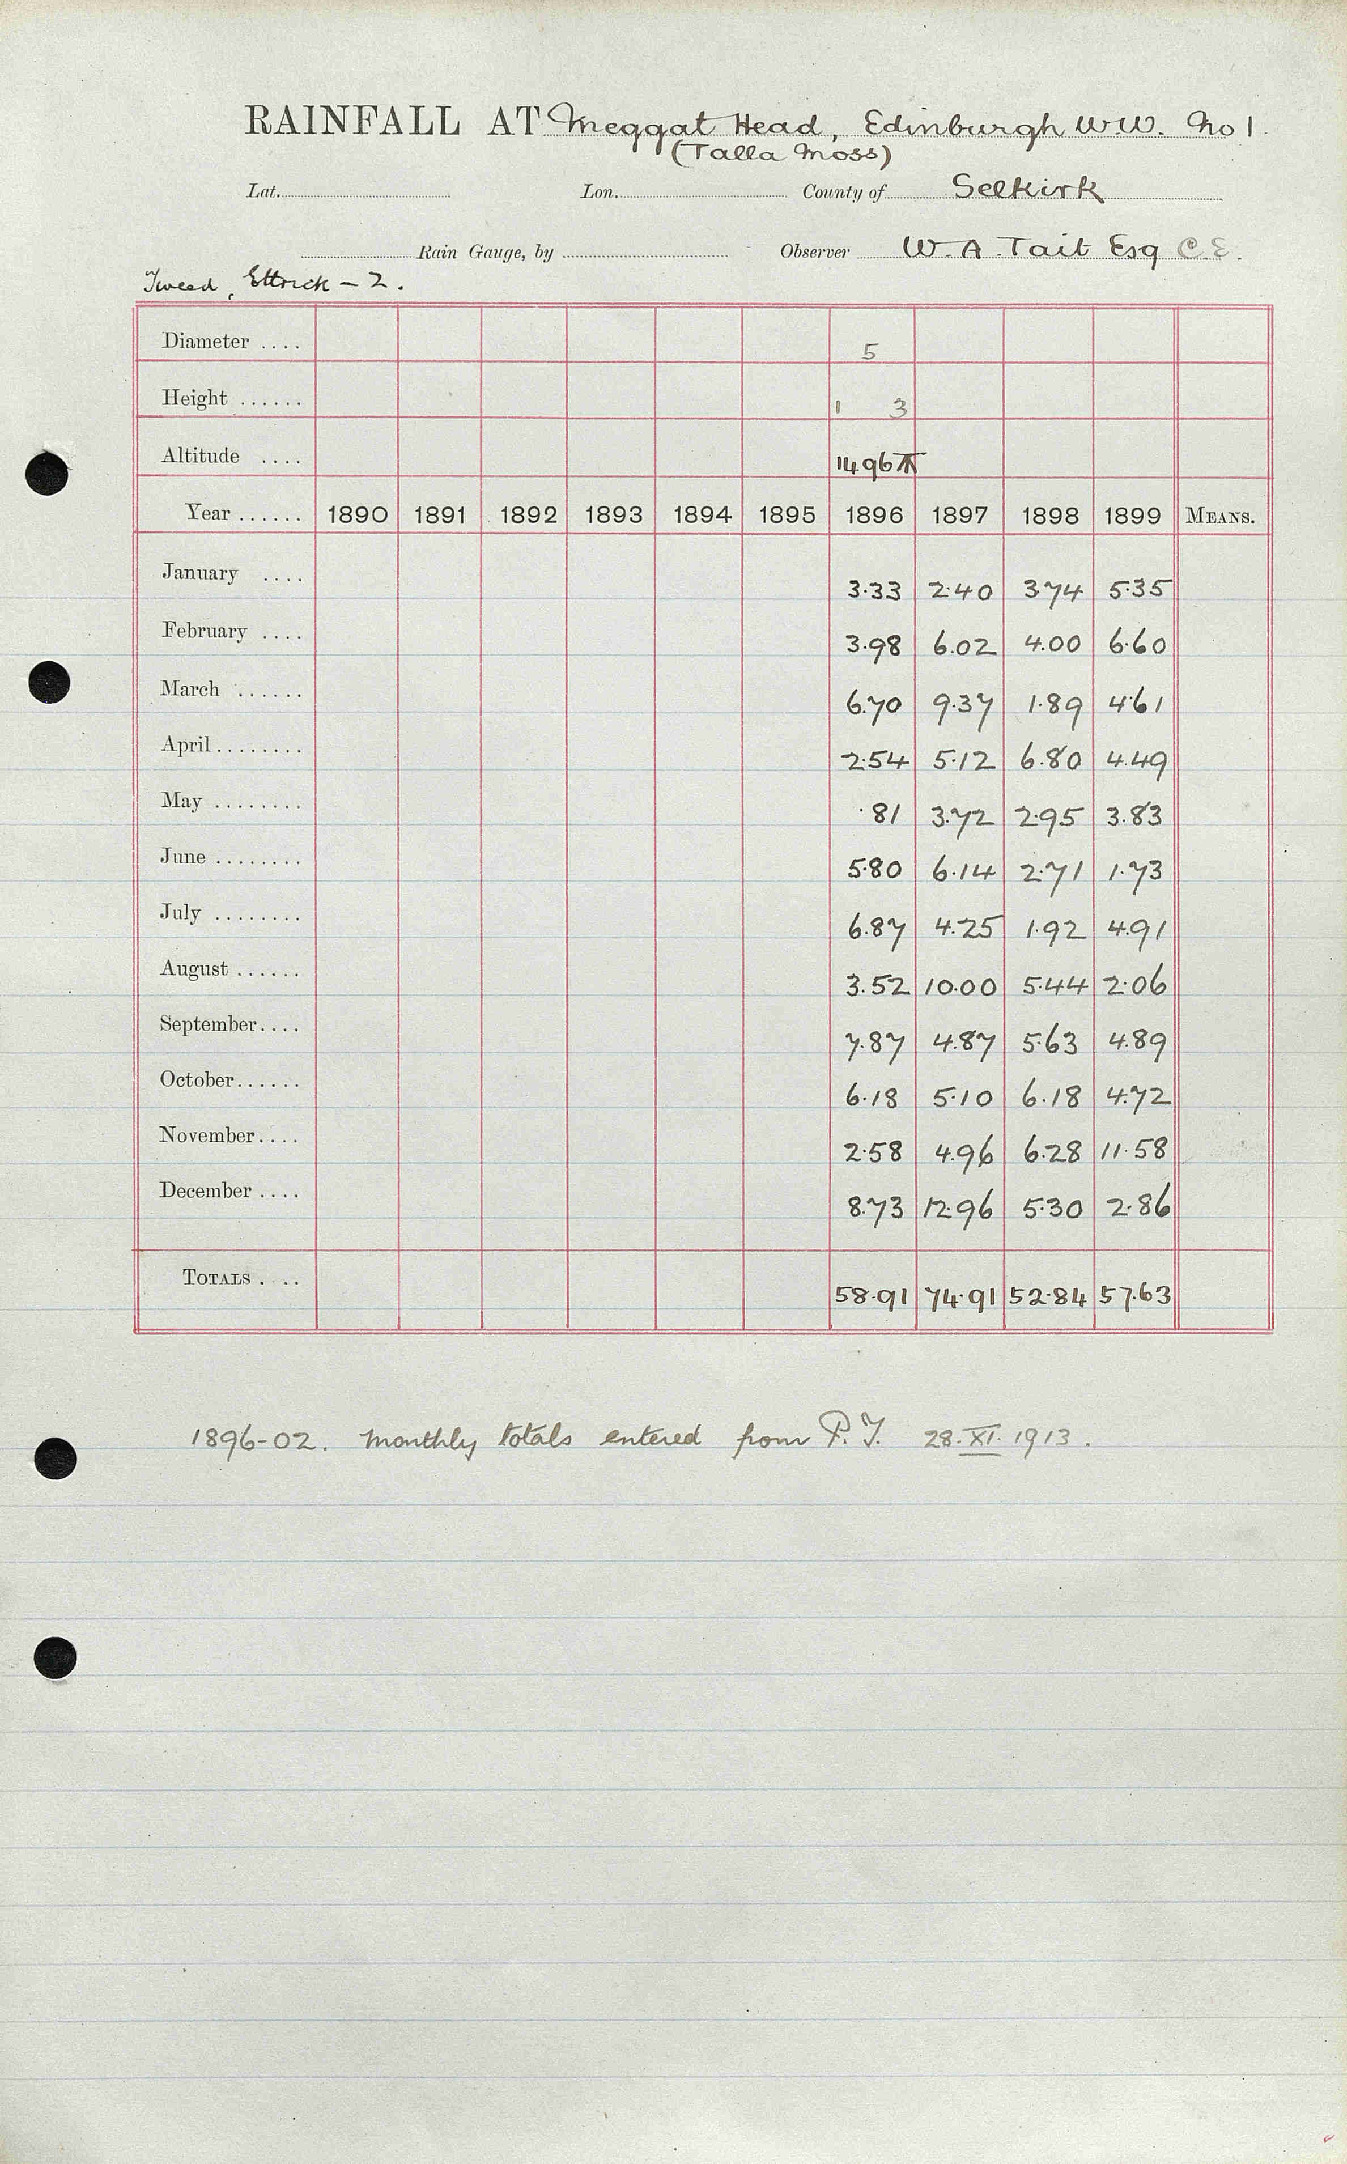 RAINFALL AT Meggat Head, Edinburgh W.W. No 1.
(Talla Moss)
Lat. Lon. County of Selkirk
Rain Gauge, by Observer W. A. Tait Esq C.E.
Tweed, Ettrick – 2.
Diameter .... 5
Height ...... 1 3
Altitude .... 1496
Year ...... 1890 1891 1892 1893 1894 1895 1896 1897 1898 1899 MEANS.
January .... 3.33 2.40 3.74 5.35
February .... 3.98 6.02 4.00 6.60
March ...... 6.70 9.37 1.89 4.61
April........ 2.54 5.12 6.80 4.49
May ........ .81 3.72 2.95 3.83
June ........ 5.80 6.14 2.71 1.73
July ........ 6.87 4.25 1.92 4.91
August ...... 3.52 10.00 5.44 2.06
September.... 7.87 4.87 5.63 4.89
October...... 6.18 5.10 6.18 4.72
November.... 2.58 4.96 6.28 11.58
December .... 8.73 12.96 5.30 2.86
TOTALS .... 58.91 74.91 52.84 57.63
1896-02. Monthly totals entered from P.T. 28.XI.1913.